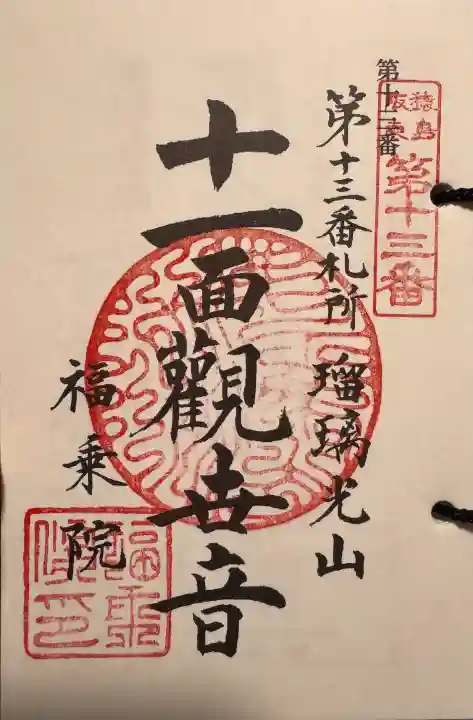 第十三番
猿島
坂東
第十三番
第十三番札所 瑠璃光山
十一面觀世音
福乗院
福乗
院印